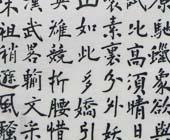 馳蠟象欲與
高須晴日
素裹分外
如此多嬌引
英雄競折腰惜
漢武略輸文采
祖稍遜風騷